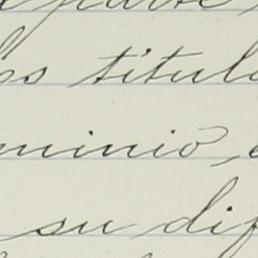 os títul
minio,
su dif